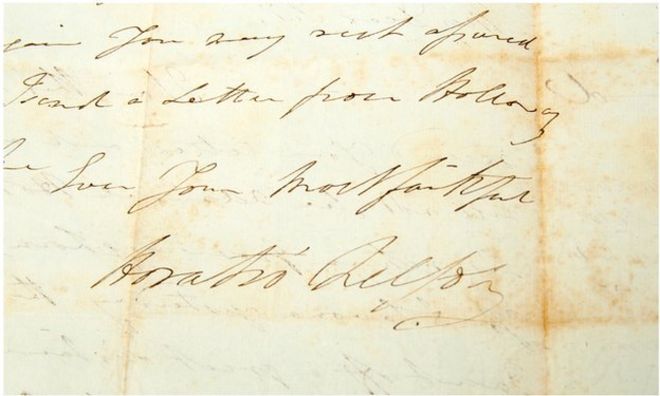 You may rest assured
I send a Letter from Holloway
Ever Your Most faithful
Horatio Nelson